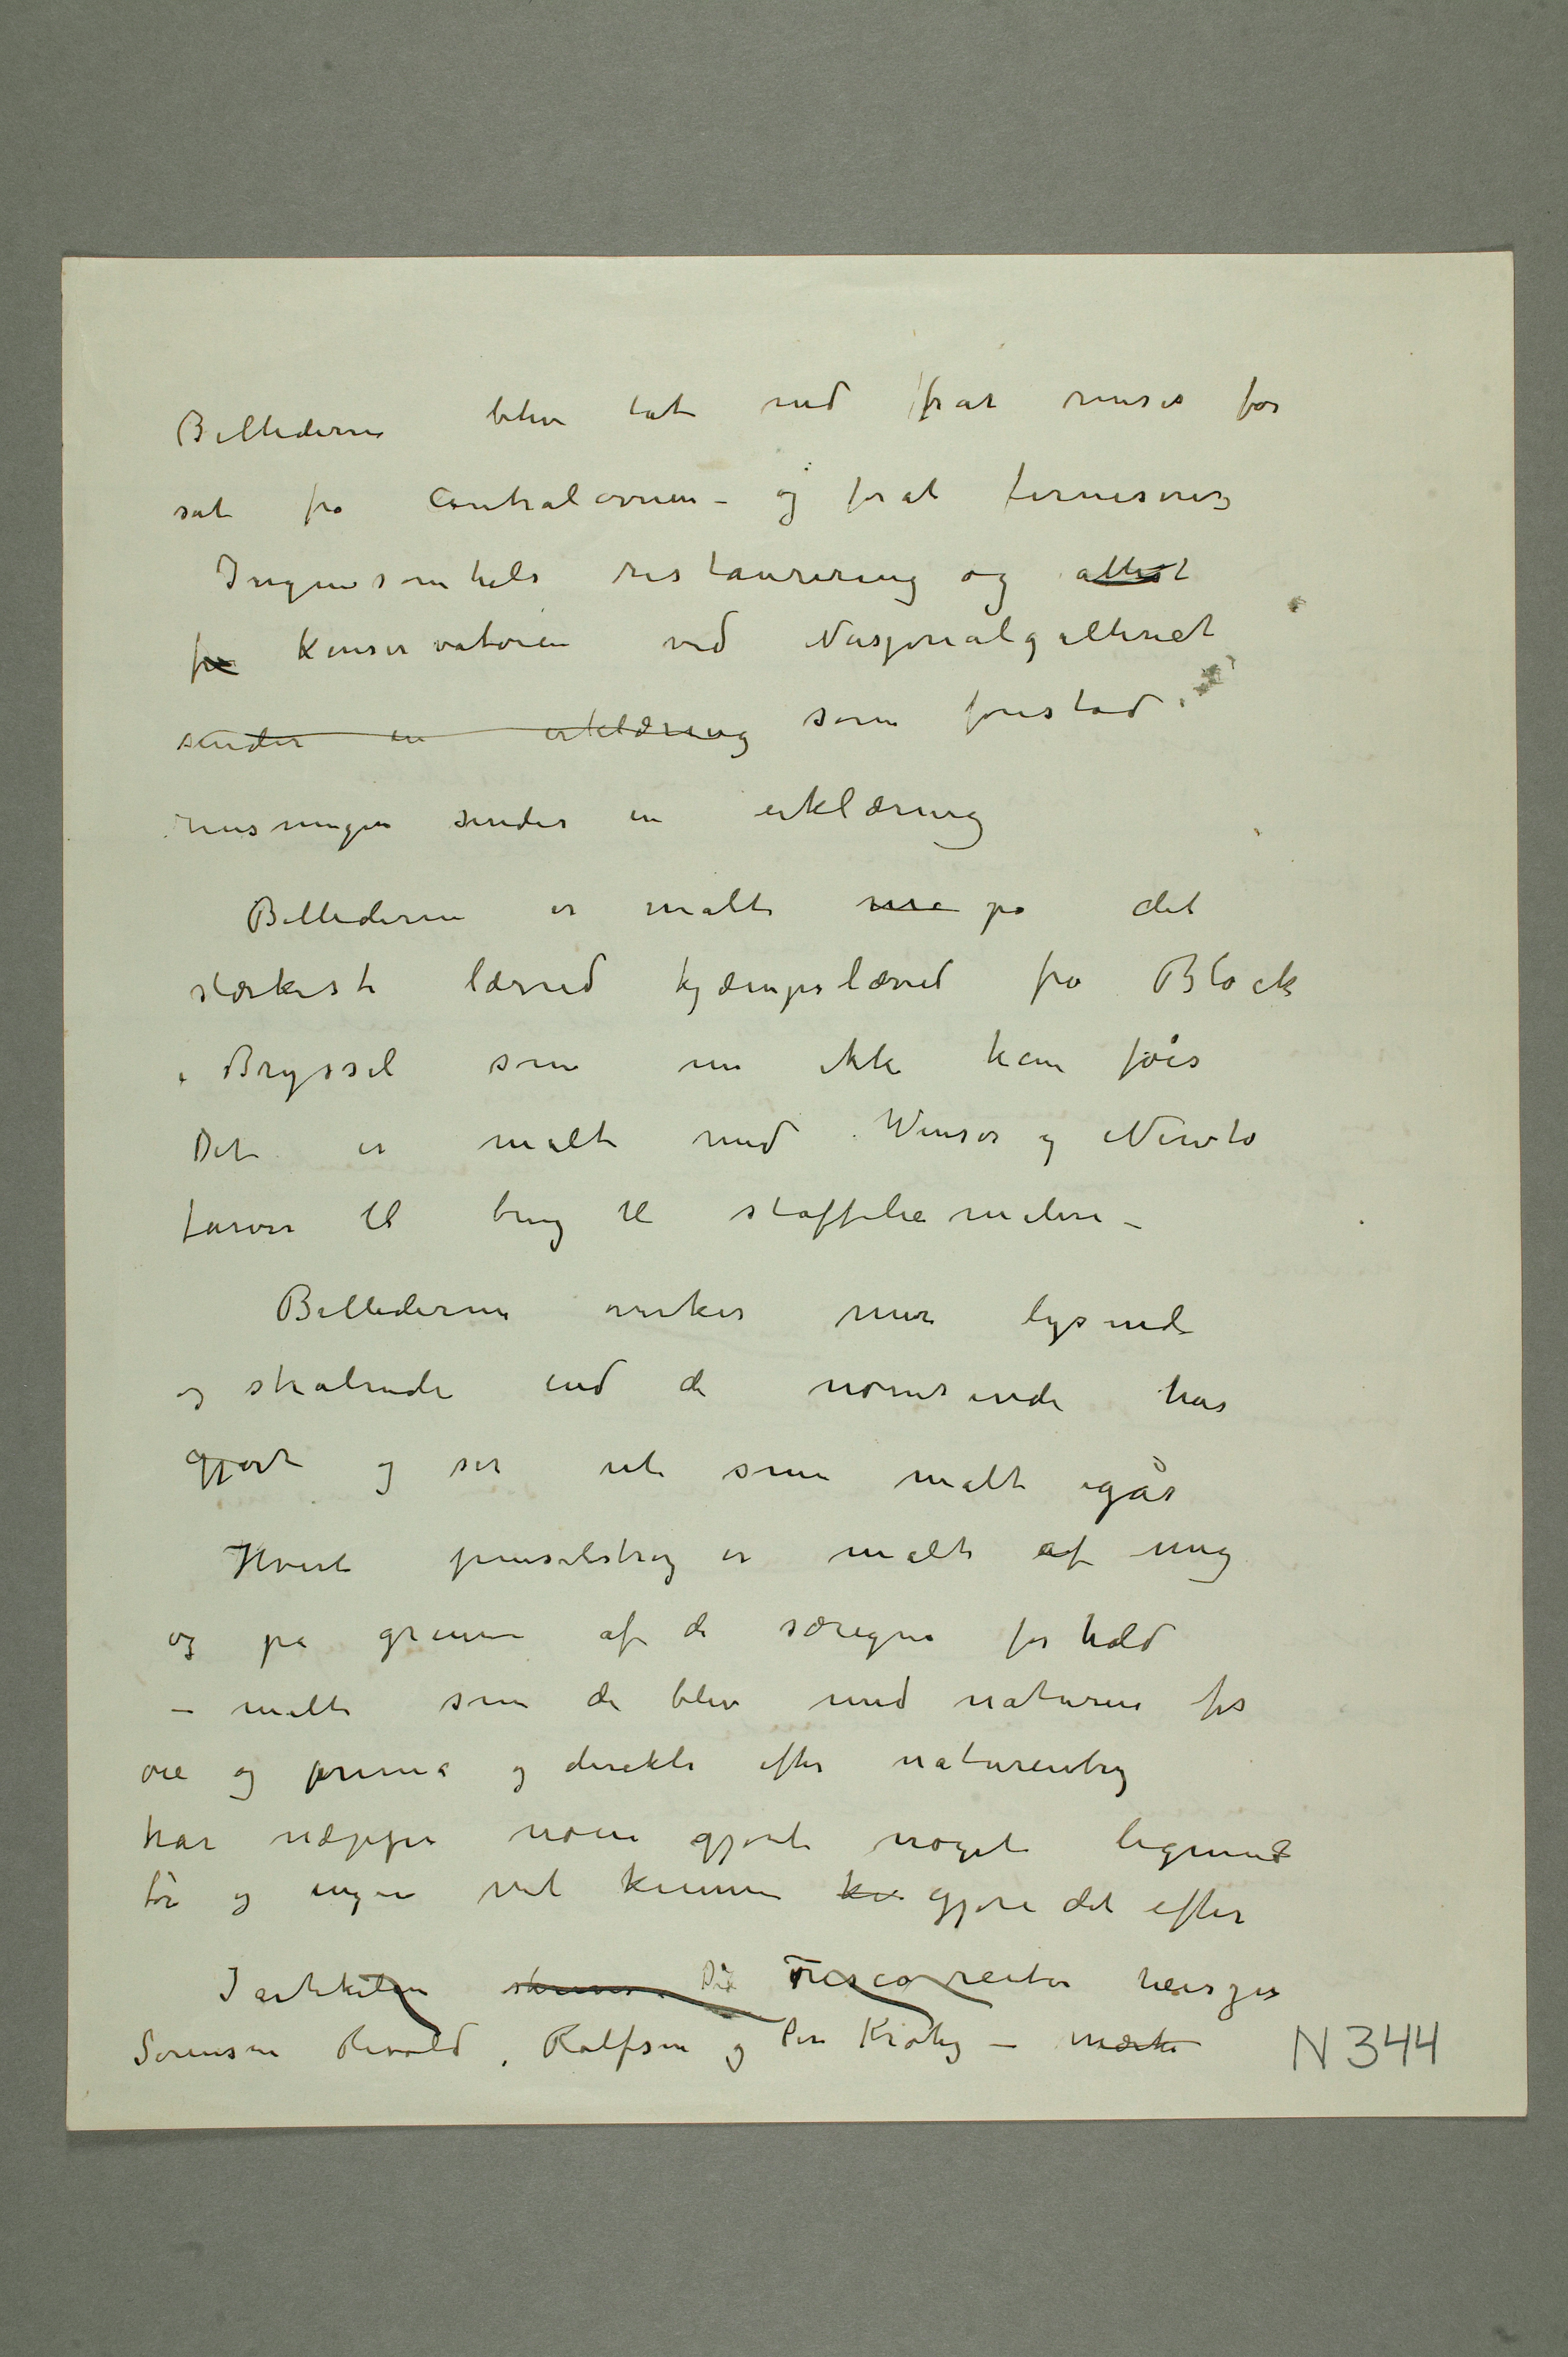 Billederne blev tat ned forat renses for
sot fra Centralovnen – og forat fernisere,
Ingensomhelst restaurering og attest
fra Konservatoren ved Nasjonalgalleriet
sender en erklæring som forestod
rensningen sender en erklæring
Billederne er malte me på det
stærkeste lærred kjæmpelærred fra Block
i Bryssel som nu ikke kan fåes
Det er malt med Winsor og Newto
farver til brug til staffelie maleri –
Billederne virker mer lysende
og strålende end de nonnsinde har
gjort og ser ut som malt igår
Hvert penselstrøg er malt af mig
og på grunn af de særegne forhold
– malte som de blev med naturen for
øie og prima og direkte efter naturindtryg
har næppe noen gjort noget lignende
før og ingen vil kunne ku gjøre det efter
I artikelen skrives Die Fresco reiter
Sørensen Revold, Rolfsen og Per Krohg – mærke
N 344